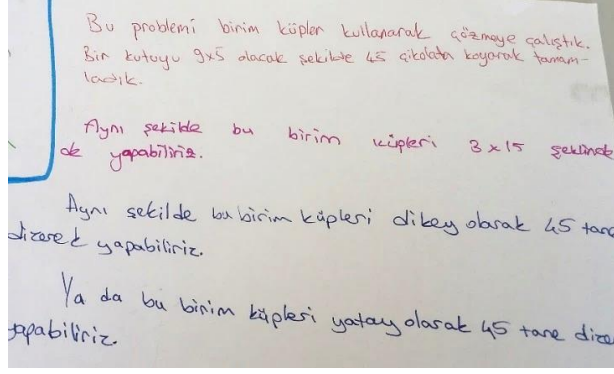 Bu problemi birim küpler kullanarak çözmeye çalıştık.
Bir kutuyu 9x5 olacak şekilde 45 çikolata koyarak tamam-
ladık.
Aynı şekilde bu birim küpleri 3 x 15 şeklinde
de yapabiliriz.
Aynı şekilde bu birim küpleri dikey olarak 45 tane
dizerek yapabiliriz.
Ya da bu birim küpleri yatay olarak 45 tane dize
yapabiliriz.